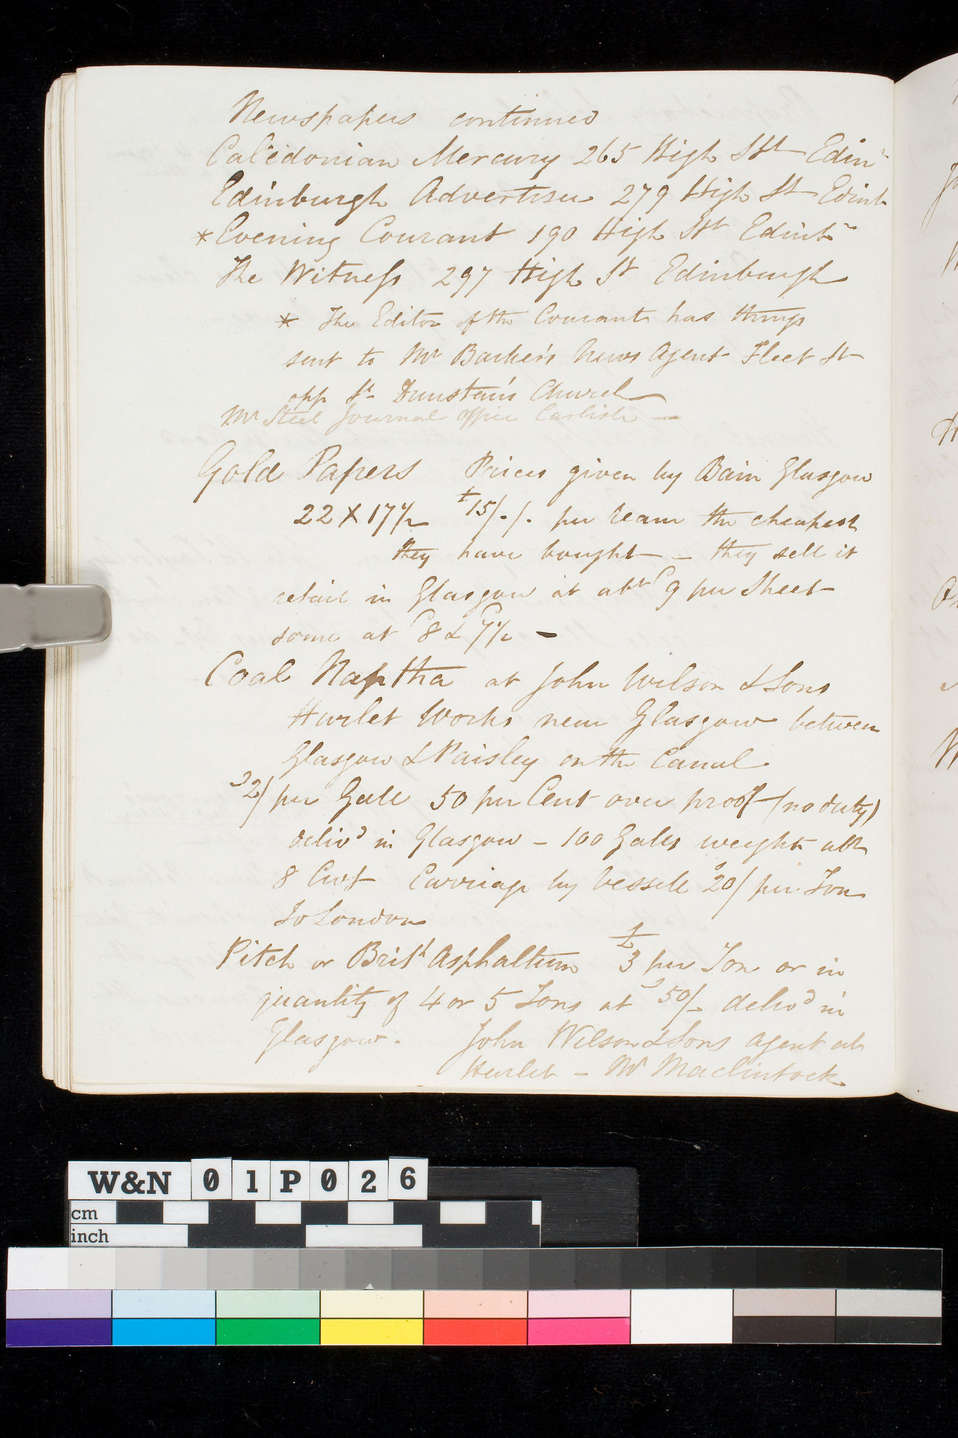 Newspapers continued
Caledonian Mercury 265 High Stt Edinr
Edinburgh Advertiser 279 High St Edinb
*Evening Courant 190 High Stt Edinbr
The Witness 297 High St Edinburgh
* The Editor of the Courant has things
sent to Mr Barker's News Agent Fleet St
opp St Dunstan's Church
Mr Steel Journal office Carlisle
Gold Papers Prices given by Bain Glasgow
22 X 17½ £15/-/- per ream the cheapest
they have bought - they sell it
retail in Glasgow at abt 9 per Sheet
some at 8 & 7½ -
Coal Naptha at John Wilson & Sons
Hurlet Works near Glasgow between
Glasgow & Paisley on the Canal
2/ per Gall 50 per Cent over proof (no duty)
delivd in Glasgow - 100 Galls weight abt
8 Cwt Carriage by Vessell 20/ per Ton
To London
Pitch or Brith Asphaltum £3 per Ton or in
quantity of 4 or 5 Tons at 50/- delivd in
Glasgow. John Wilson & Sons agent at
Hurlet - Mr Maclintock
W&N 01P026
cm
inch